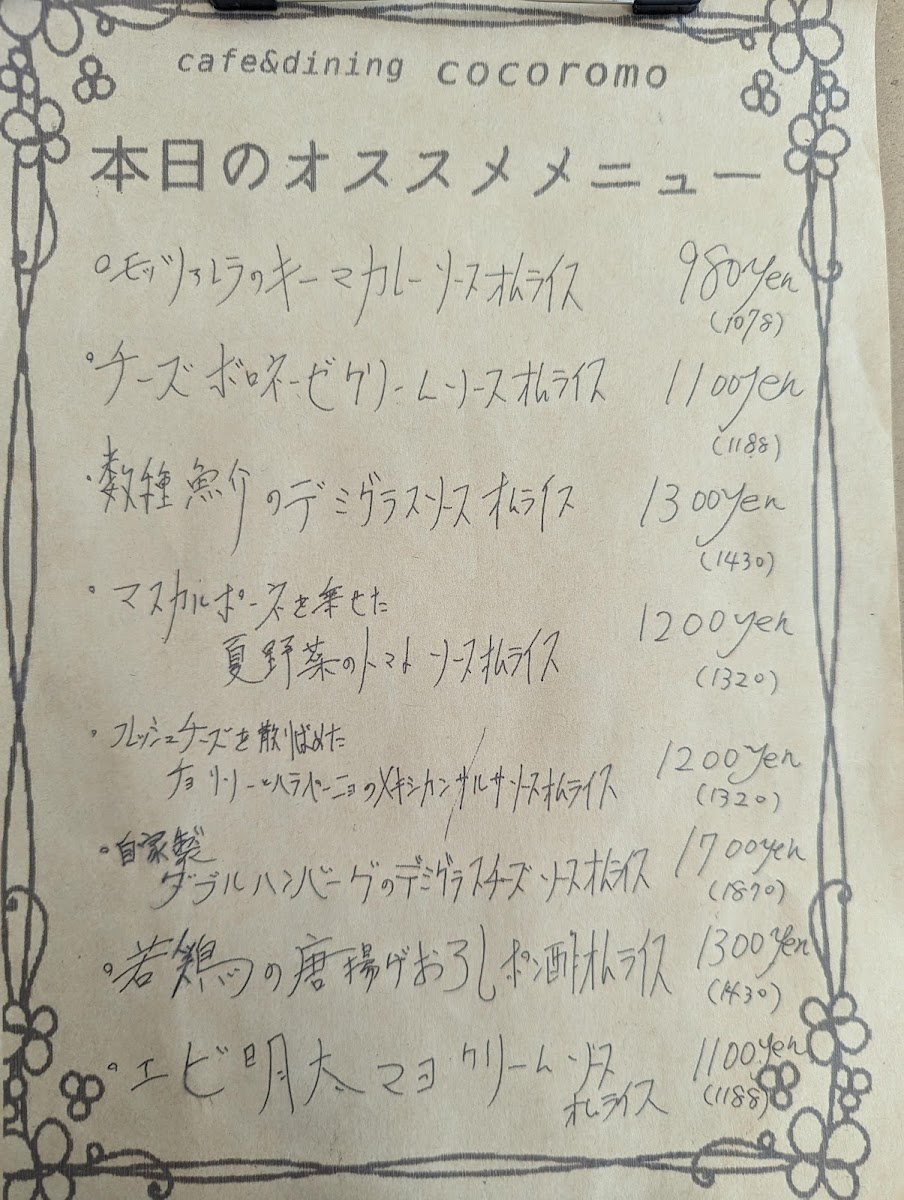 cafe&dining cocoromo
本日のオススメメニュー
○モッツァレラのキーマカレーソースオムライス 980yen
(1078)
○チーズボロネーゼクリームソースオムライス 1100yen
(1188)
・数種魚介のデミグラスソースオムライス 1300yen
(1430)
○マスカルポーネを乗せた
夏野菜のトマトソースオムライス 1200yen
(1320)
・フレッシュチーズを散りばめた
チョリソーとハラペーニョのメキシカンサルサソースオムライス 1200yen
(1320)
・自家製
ダブルハンバーグのデミグラスチーズソースオムライス 1700yen
(1870)
○若鶏の唐揚げおろしポン酢オムライス 1300yen
(1430)
・エビ明太マヨクリームソース
オムライス 1100yen
(1188)